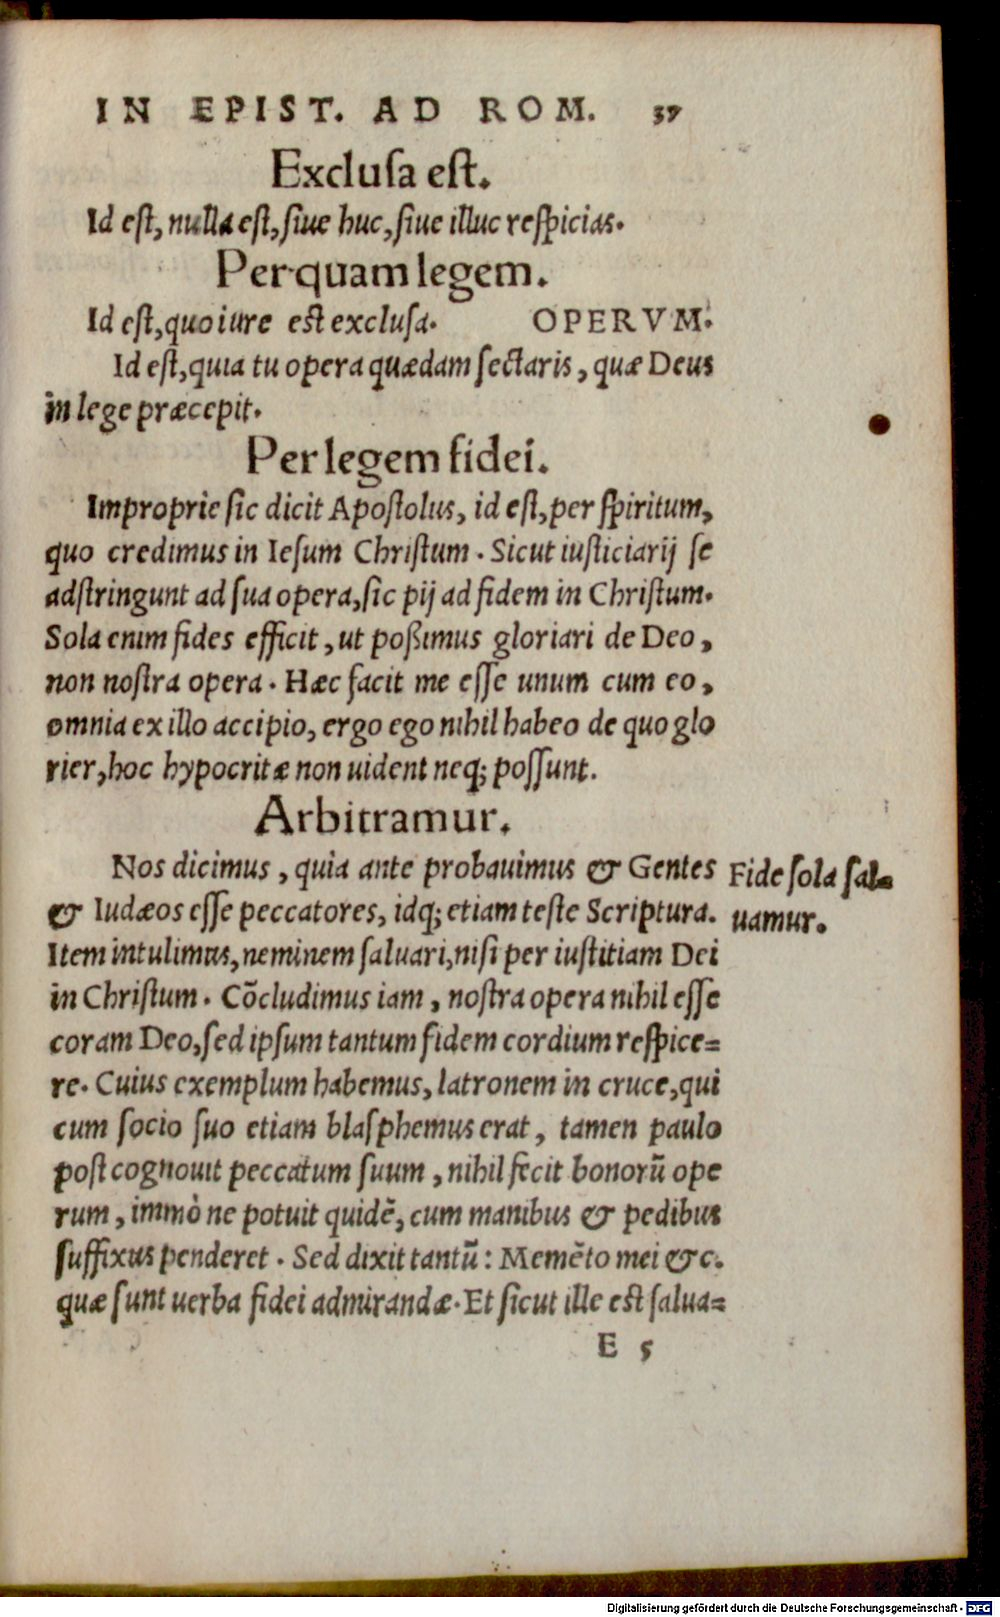 IN EPIST. AD ROM. 37
Exclusa est.
Id est, nulla est, siue huc, siue illuc respicias.
Per quam legem.
Id est, quo iure est exclusa. OPERVM.
Id est, quia tu opera quædam sectaris, quæ Deus
in lege præcepit.
Per legem fidei.
Improprie sic dicit Apostolus, id est, per spiritum,
quo credimus in Iesum Christum. Sicut iusticiarij se
adstringunt ad sua opera, sic pij ad fidem in Christum.
Sola enim fides efficit, ut poßimus gloriari de Deo,
non nostra opera. Hæc facit me esse unum cum eo,
omnia ex illo accipio, ergo ego nihil habeo de quo glo
rier, hoc hypocritæ non uident neq; possunt.
Arbitramur.
Nos dicimus, quia ante probauimus & Gentes
& Iudæos esse peccatores, idq; etiam teste Scriptura.
Item intulimus, neminem saluari, nisi per iustitiam Dei
in Christum. Cõcludimus iam, nostra opera nihil esse
coram Deo, sed ipsum tantum fidem cordium respice=
re. Cuius exemplum habemus, latronem in cruce, qui
cum socio suo etiam blasphemus erat, tamen paulo
post cognouit peccatum suum, nihil fecit bonorũ ope
rum, immò ne potuit quidẽ, cum manibus & pedibus
suffixus penderet. Sed dixit tantũ: Memẽto mei &c.
quæ sunt uerba fidei admirandæ. Et sicut ille est salua=
E 5
Fide sola sal=
uamur.
Digitalisierung gefördert durch die Deutsche Forschungsgemeinschaft - DFG